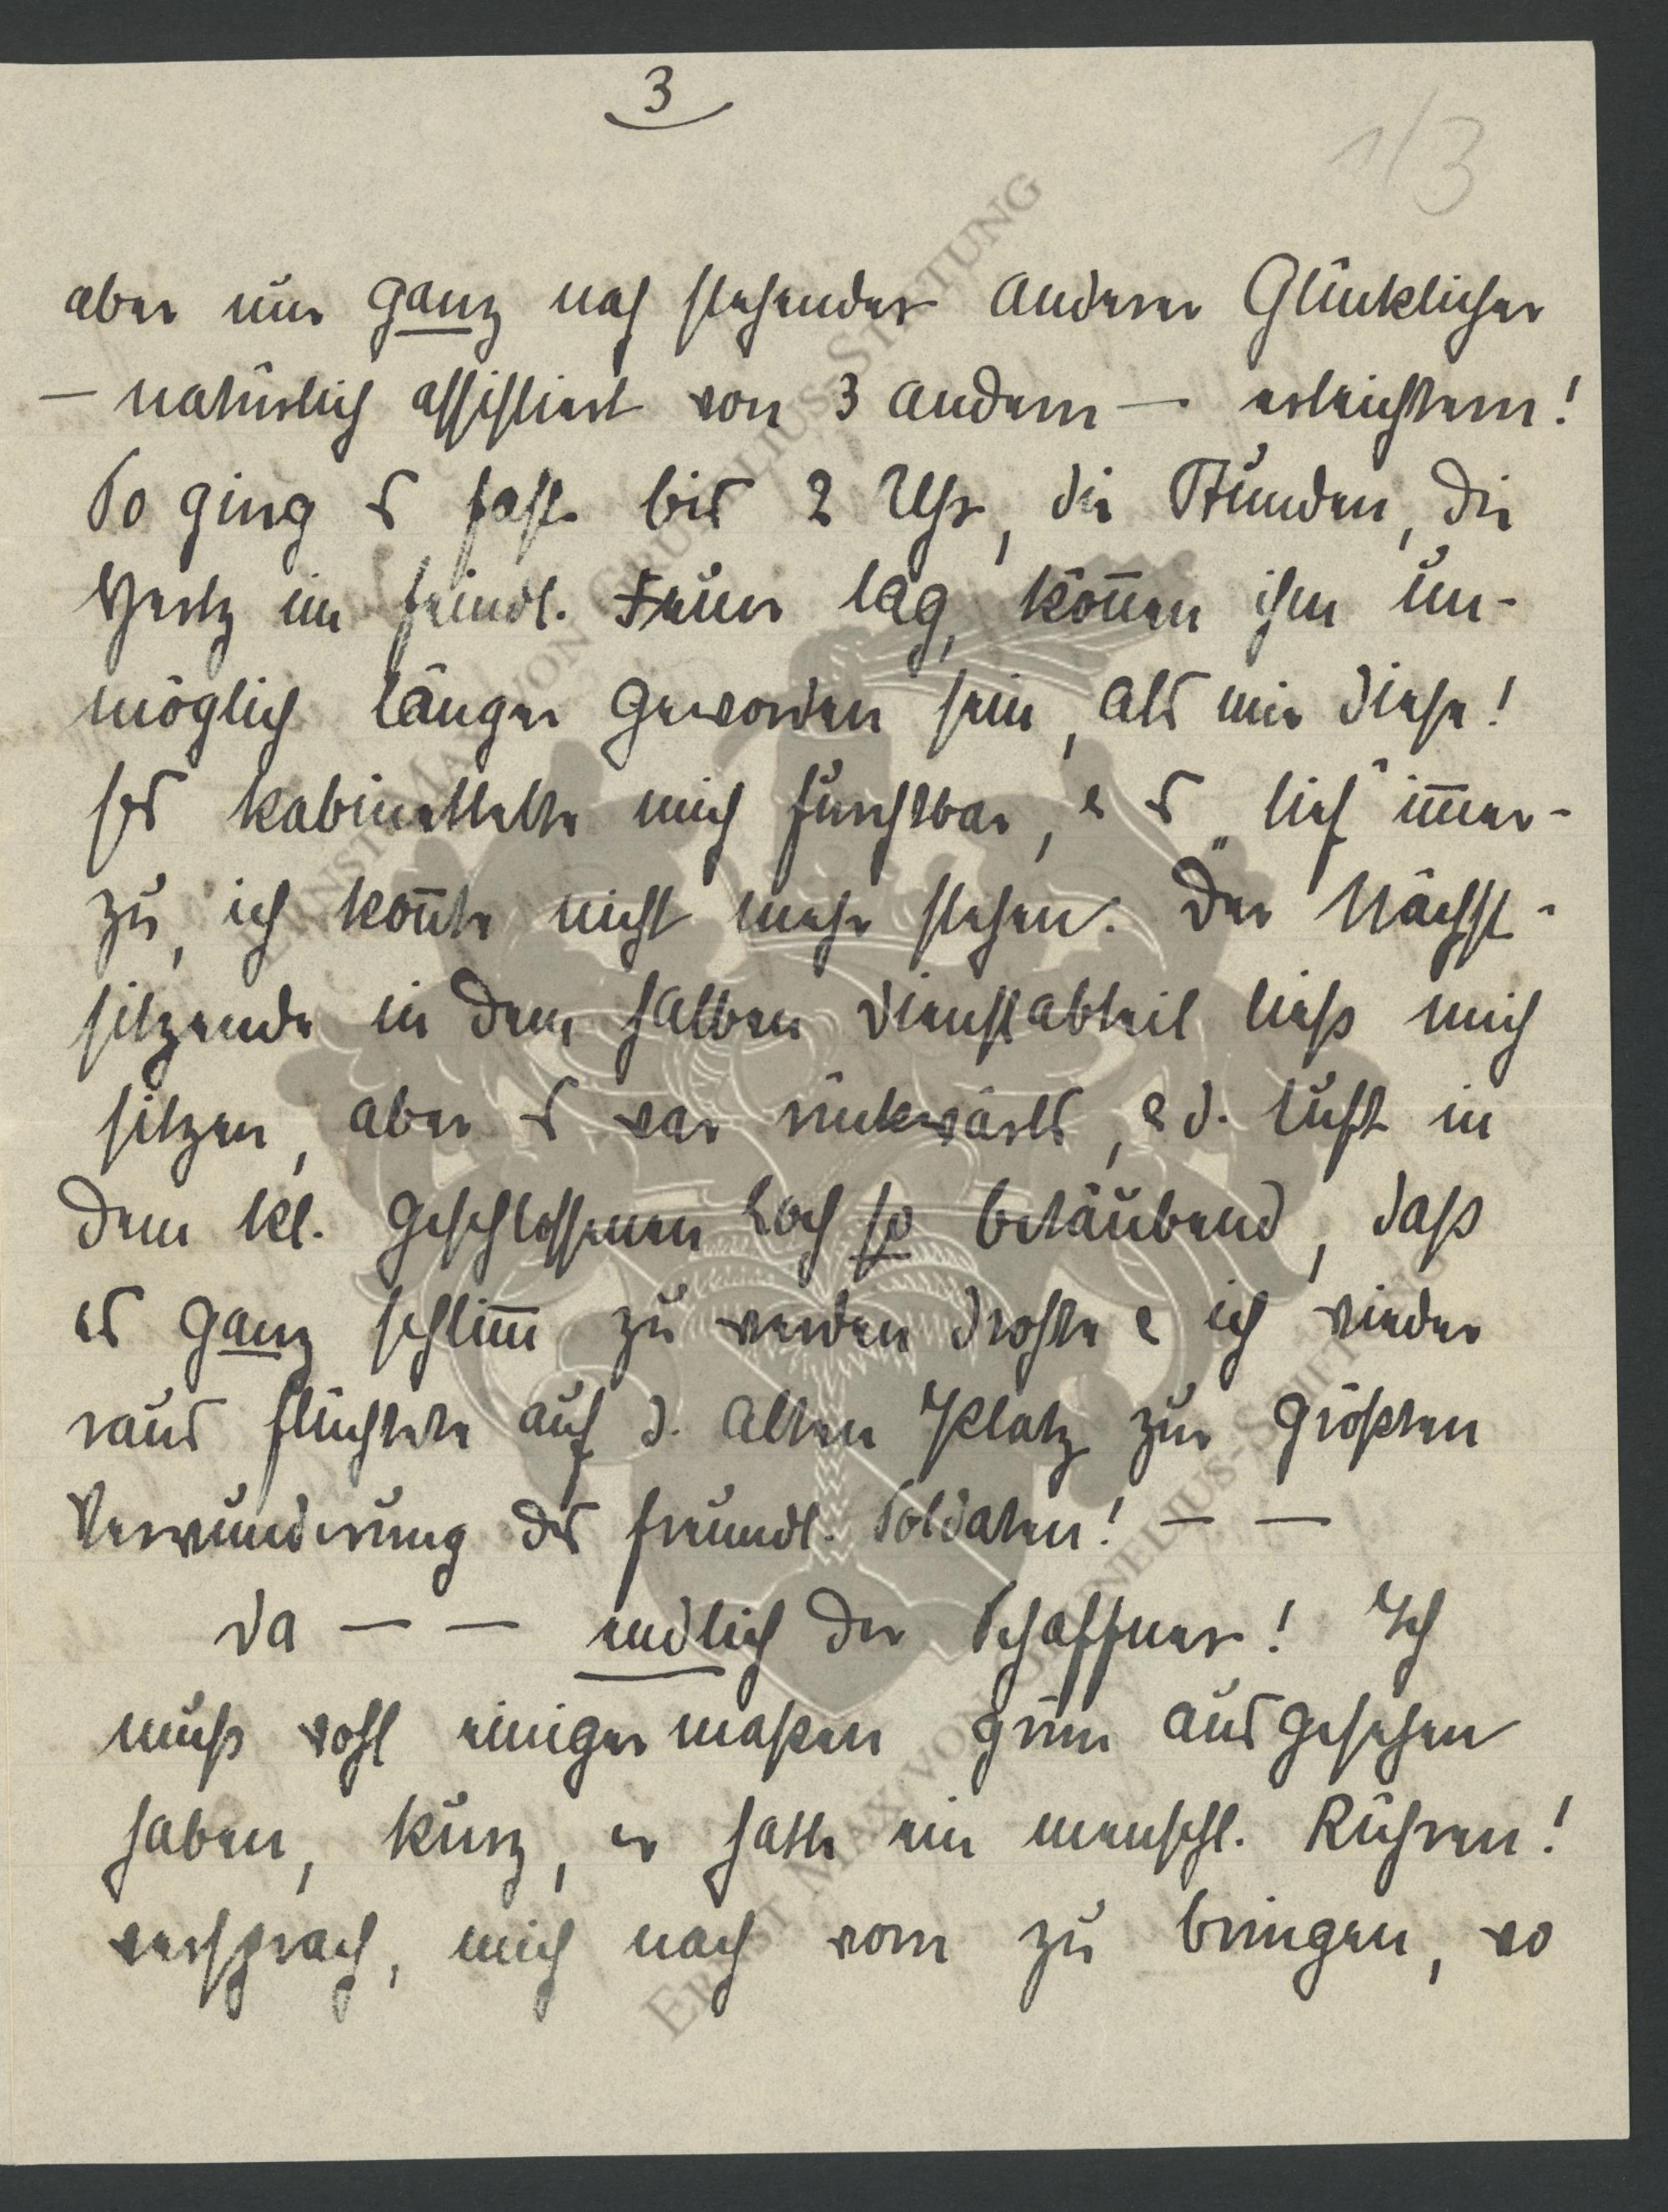 3
1/3
aber nur ganz nah stehender anderer Glücklicher
— natürlich assistiert von 3 andern — erleichtern!
So ging es fast bis 2 Uhr, die Stunden, die
Hertz im feindl. Feuer lag, können ihm un-
möglich länger geworden sein, als mir diese!
es kabinettelte mich furchtbar, & es „lief" immer-
zu, ich konnte nicht mehr stehen. Der Nächst-
sitzende in dem halben Dienstabteil ließ mich
sitzen, aber es war rückwärts, & d. Luft in
dem kl. geschlossenen Loch so betäubend, daß
es ganz schlimm zu werden drohte & ich wieder
raus flüchtete auf d. alten Platz zur größten
Verwunderung des freundl. Soldaten! — —
Da — — endlich der Schaffner! Ich
muß wohl einigermaßen grün ausgesehen
haben, kurz, er hatte ein menschl. Rühren!
versprach, mich nach vorn zu bringen, wo
ERNST MAX VON GRUNELIUS-STIFTUNG
ERNST MAX VON GRUNELIUS-STIFTUNG